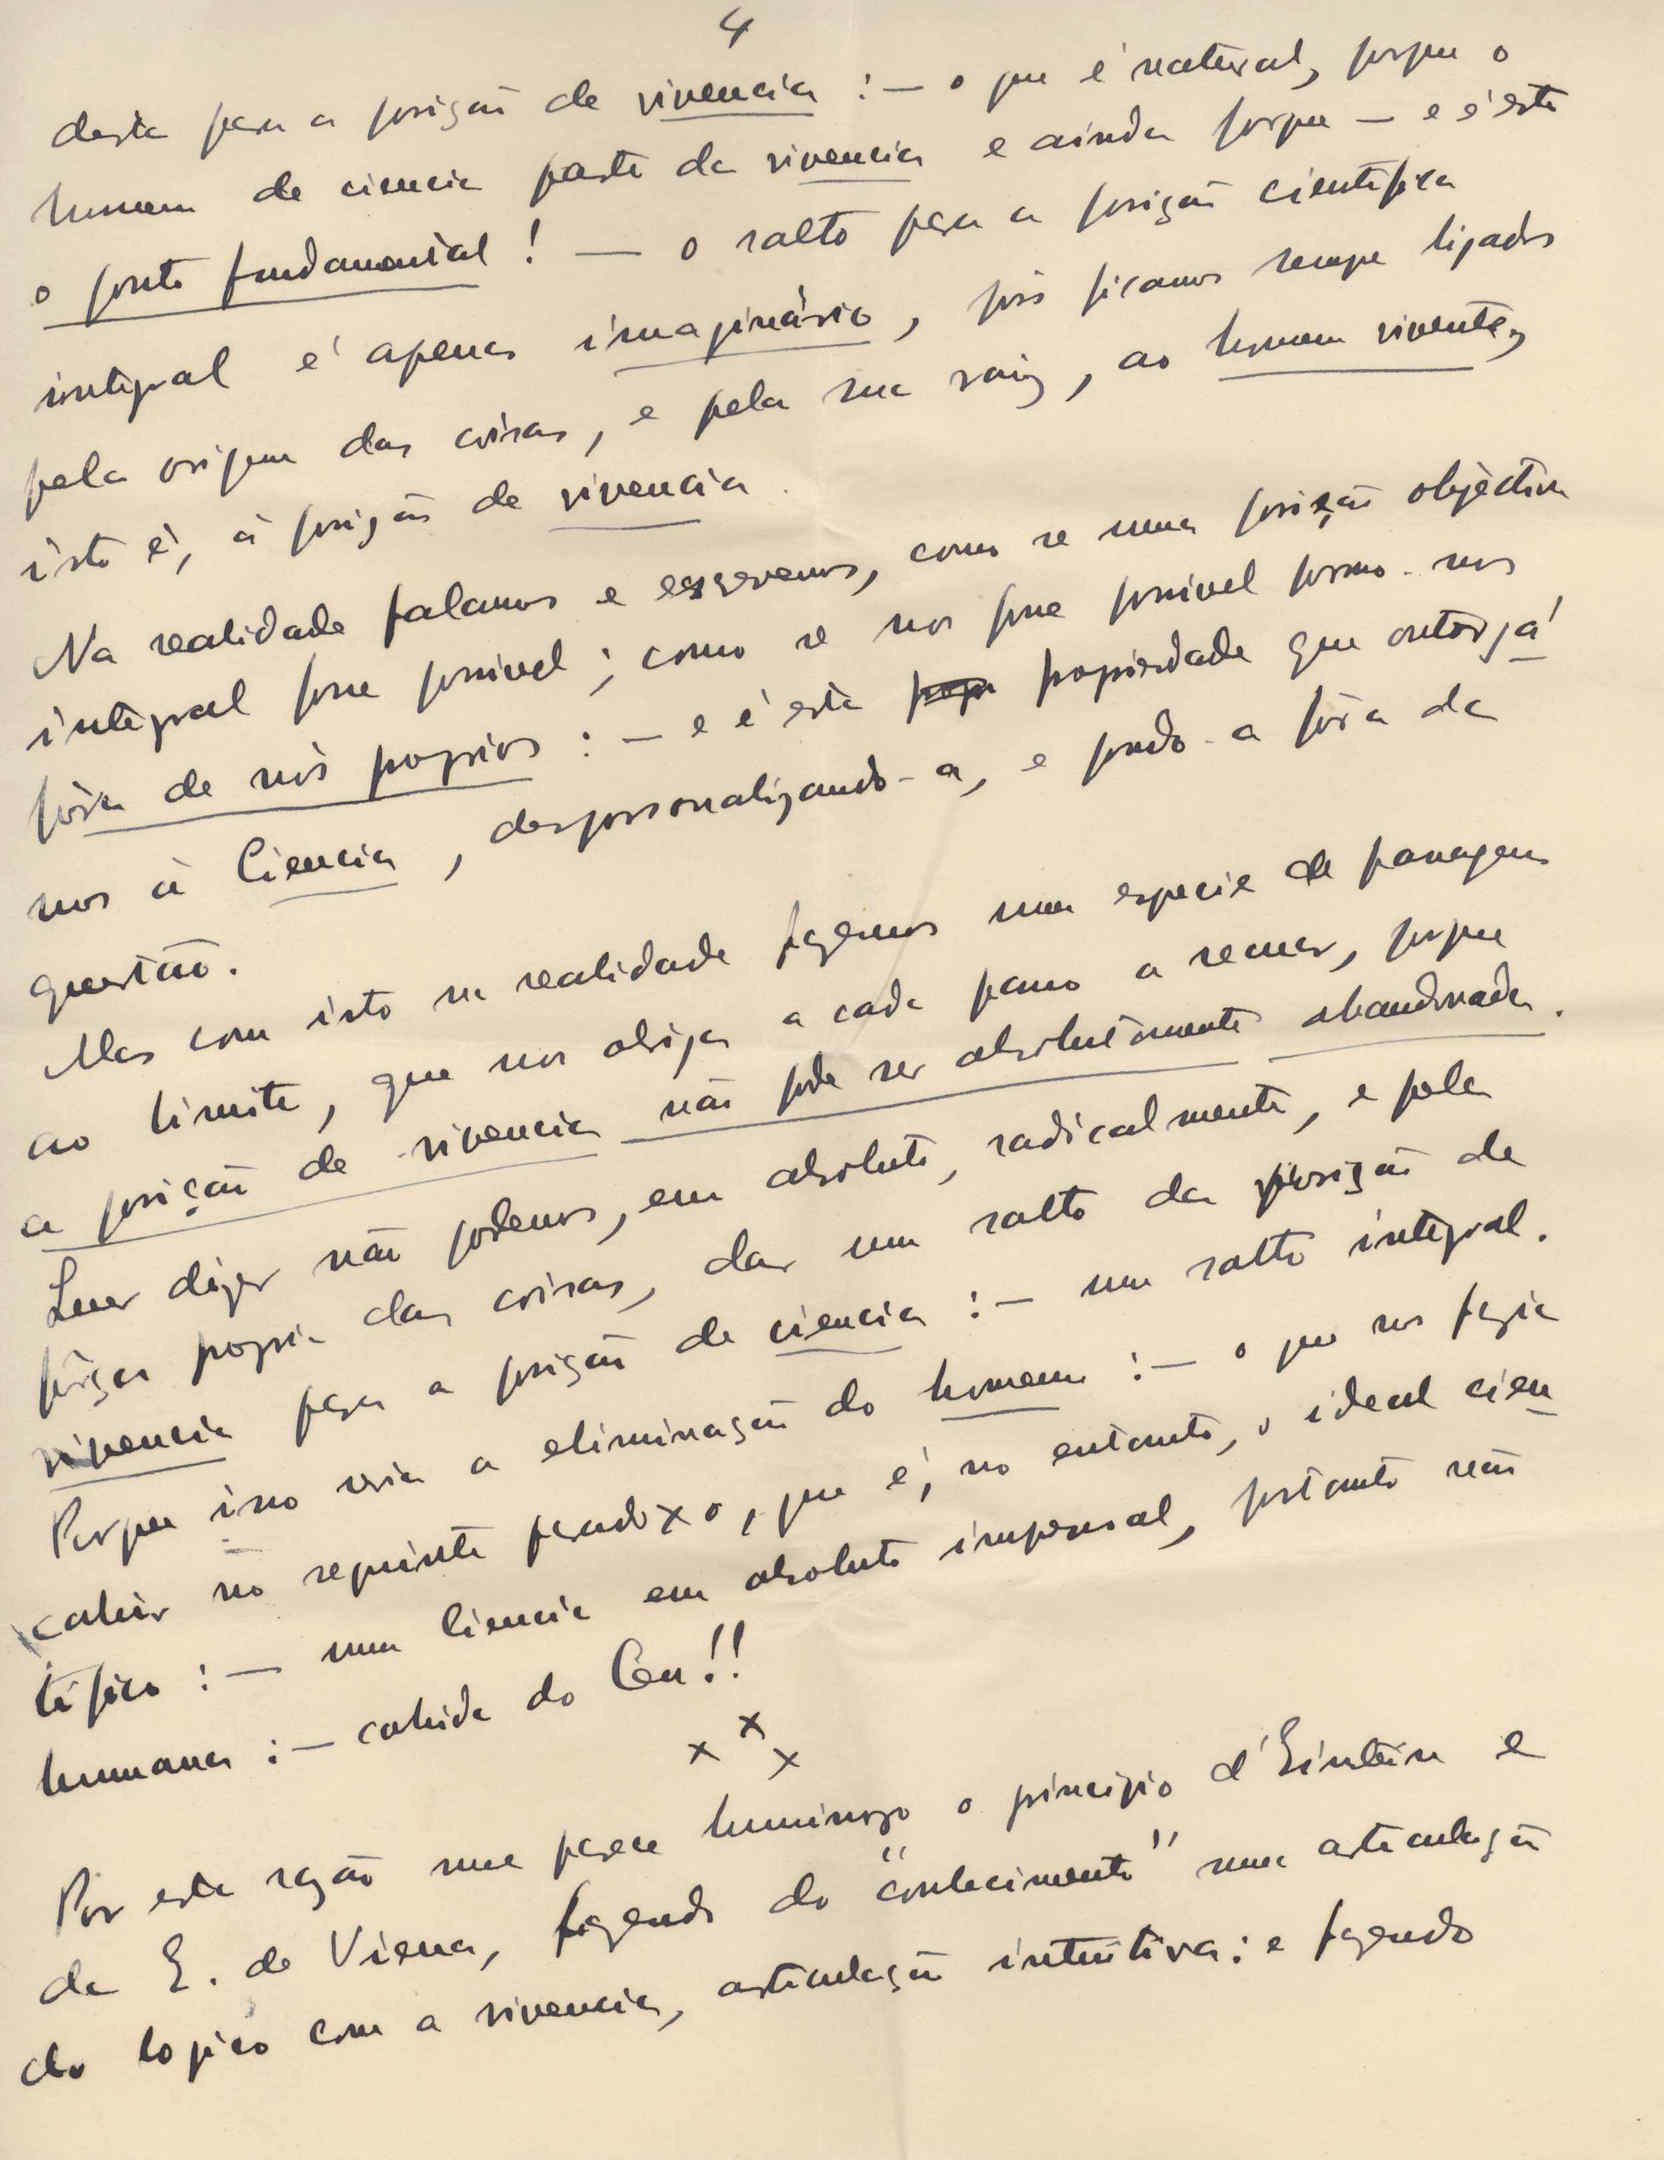 4
desta para a posição de vivencia : — o que é natural, porque o
homem de ciencia parte da vivencia e ainda porque — e é este
o ponto fundamental ! — o salto para a posição cientifica
integral é apenas imaginário, pois ficamos sempre ligados
pela origem das coisas, e pela sua raiz, ao homem vivente,
isto é, á posição de vivencia.
Na realidade falamos e escrevemos, como se uma posição objéctiva
integral fosse possivel ; como se nos fosse possivel pormo-nos
fóra de nós proprios : — e é esta propriedade que outorgá
mos á Ciencia, despersonalizando-a, e pondo-a fóra da
questão.
Mas com isto na realidade fazemos uma especie de passagem
ao limite, que nos obriga a cada passo a recuar, porque
a posição de vivencia não pode ser absolutamente abandonada.
Quer dizer não podemos, em absoluto, radicalmente, e pela
fôrça propria das coisas, dar um salto da posição de
vivencia para a posição de ciencia : — um salto integral.
Porque isso seria a eliminação do homem : — o que nos fazia
cahir no seguinte paradoxo, que é, no entanto, o ideal cien
tifico : — uma Ciencia em absoluto impessoal, portanto não
humana : — cahida do Ceu!!
x x x
Por esta razão me parece luminoso o principio d'Einstein e
da E. de Viena, fazendo do "conhecimento" uma articulação
do logico com a vivencia, articulação intuitiva : e fazendo